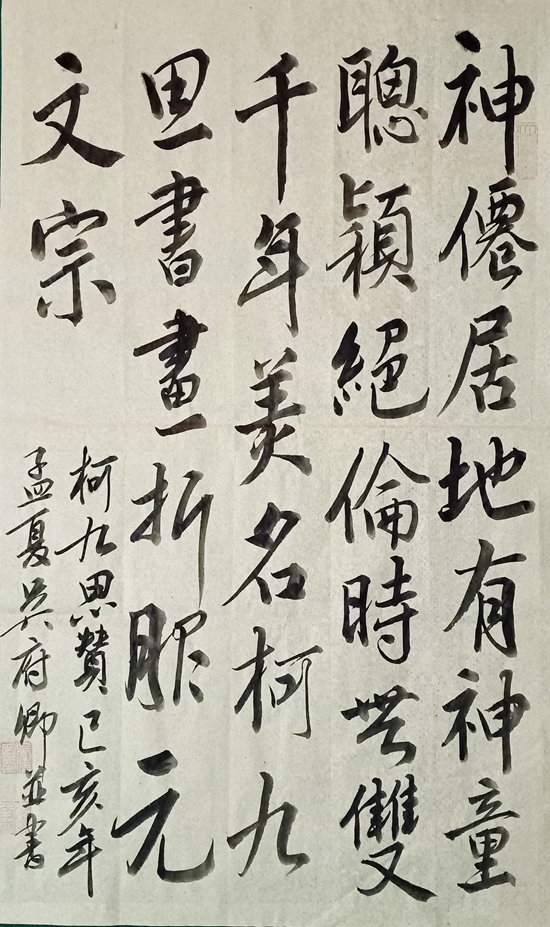 神僊居地有神童
聰穎絕倫時無雙
千年美名柯九
思書畫折服元
文宗
柯九思贊己亥年
孟夏吴府卿並書